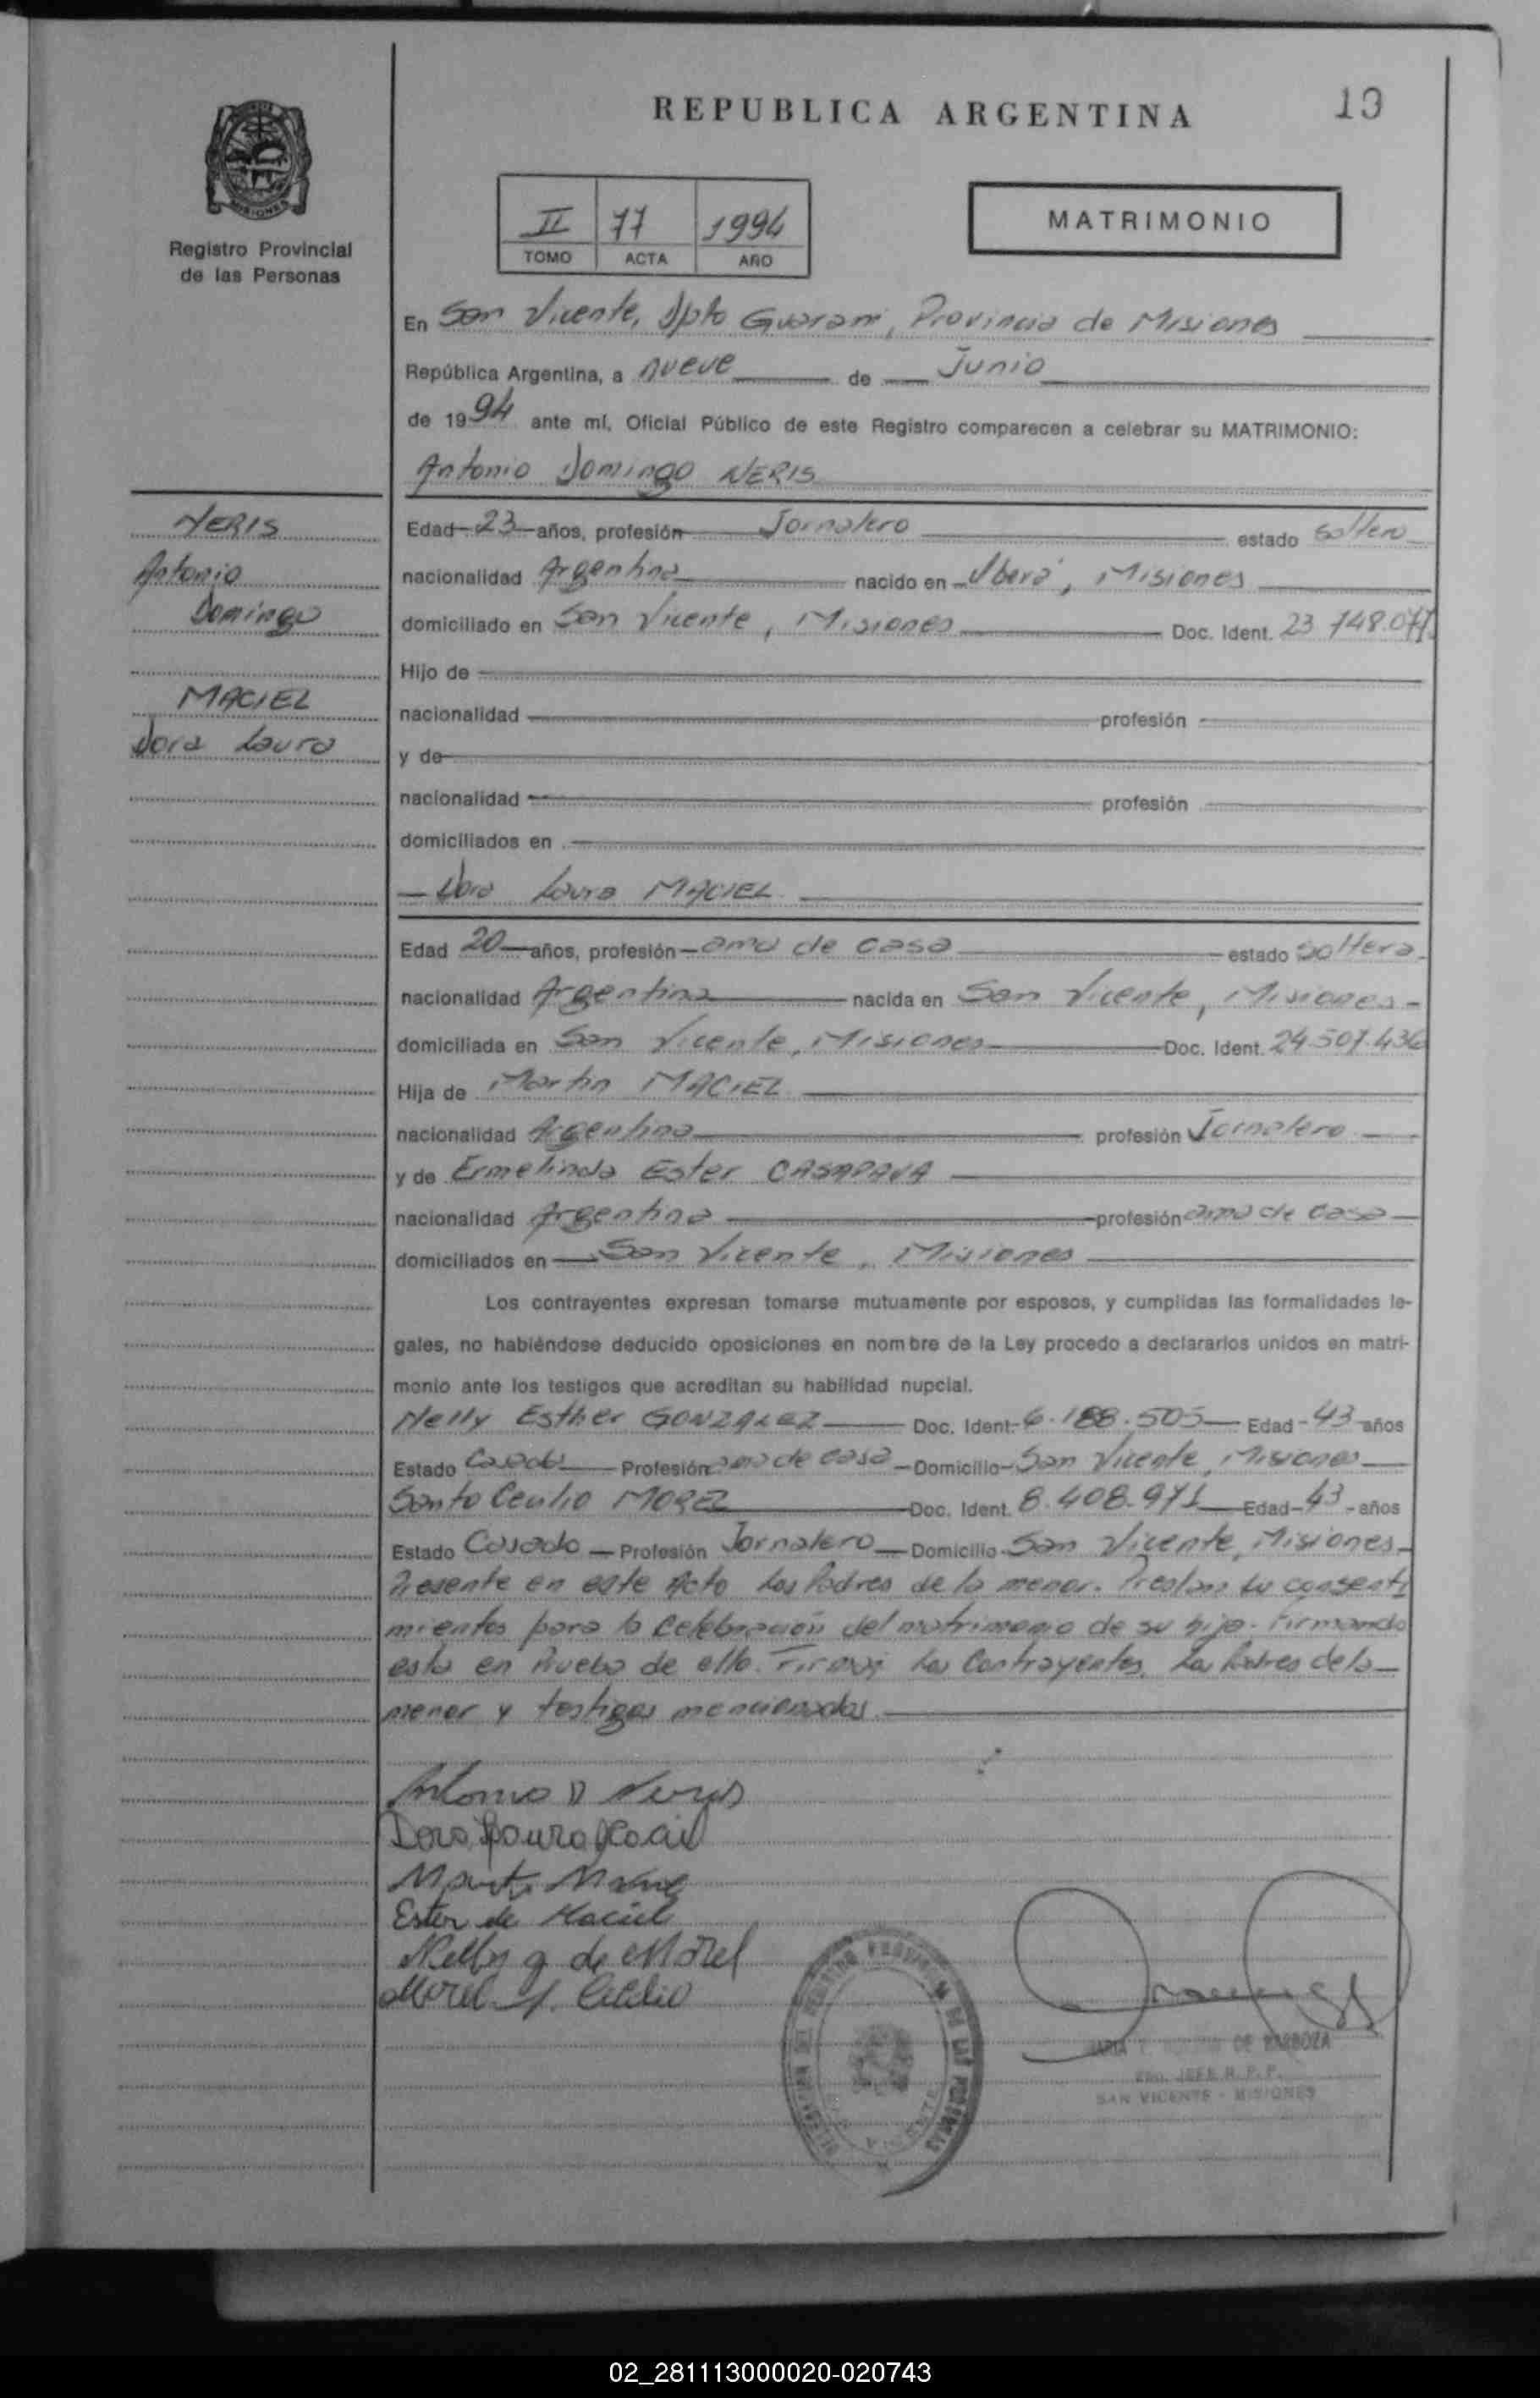 REPUBLICA ARGENTINA
19
MISIONES
Registro Provincial
de las Personas
II 77 1994
TOMO ACTA AÑO
MATRIMONIO
En San Vicente, Dpto Guarani, Provincia de Misiones
República Argentina, a nueve de Junio
de 1994 ante mí, Oficial Público de este Registro comparecen a celebrar su MATRIMONIO:
Antonio Domingo NERIS
NERIS
Antonio
Domingo
MACIEL
Dora Laura
Edad 23 años, profesión Jornalero estado soltero
nacionalidad Argentina nacido en Oberá, Misiones
domiciliado en San Vicente, Misiones Doc. Ident. 23 748.077
Hijo de
nacionalidad profesión
y de
nacionalidad profesión
domiciliados en
Dora Laura MACIEL
Edad 20 años, profesión ama de casa estado soltera
nacionalidad Argentina nacida en San Vicente, Misiones
domiciliada en San Vicente, Misiones Doc. Ident. 24.507.436
Hija de Martin MACIEL
nacionalidad Argentina profesión Jornalero
y de Ermelinda Ester CASAPAVA
nacionalidad Argentina profesión ama de casa
domiciliados en San Vicente, Misiones
Los contrayentes expresan tomarse mutuamente por esposos, y cumplidas las formalidades le-
gales, no habiéndose deducido oposiciones en nombre de la Ley procedo a declararlos unidos en matri-
monio ante los testigos que acreditan su habilidad nupcial.
Nelly Esther GONZALEZ Doc. Ident. 6.188.505 Edad 43 años
Estado Casada Profesión ama de casa Domicilio San Vicente, Misiones
Santo Cecilio MOREL Doc. Ident. 8.408.971 Edad 43 años
Estado Casado Profesión Jornalero Domicilio San Vicente, Misiones
Presente en este Acto Los Padres de la menor. Prestan su consenti
mientos para la Celebración del matrimonio de su hija. Firmando
esta en Prueba de ello. Firman Los Contrayentes, Los Padres de la
menor y testigos mencionados
Antonio D Nerys
Dora Laura Maciel
Martin Maciel
Ester de Maciel
Nelly g de Morel
Morel S. Cecilio
DE BARBOZA
JEFE R. P. P.
SAN VICENTE - MISIONES
02_281113000020-020743